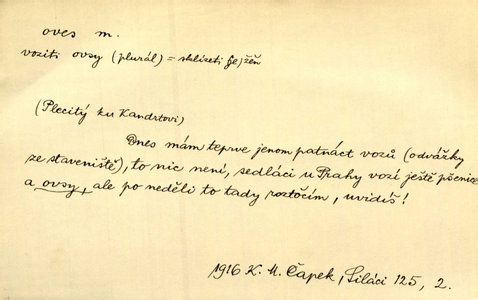 oves m.
voziti ovsy (plurál) = sklízeti je, žeň
(Plecitý ku Kandrtovi)
Dnes mám teprve jenom patnáct vozů (odvážky
ze staveniště), to nic není, sedláci u Prahy vozí ještě pšenice
a ovsy, ale po neděli to tady roztočím, uvidíš!
1916 K. M. Čapek, Siláci 125, 2.